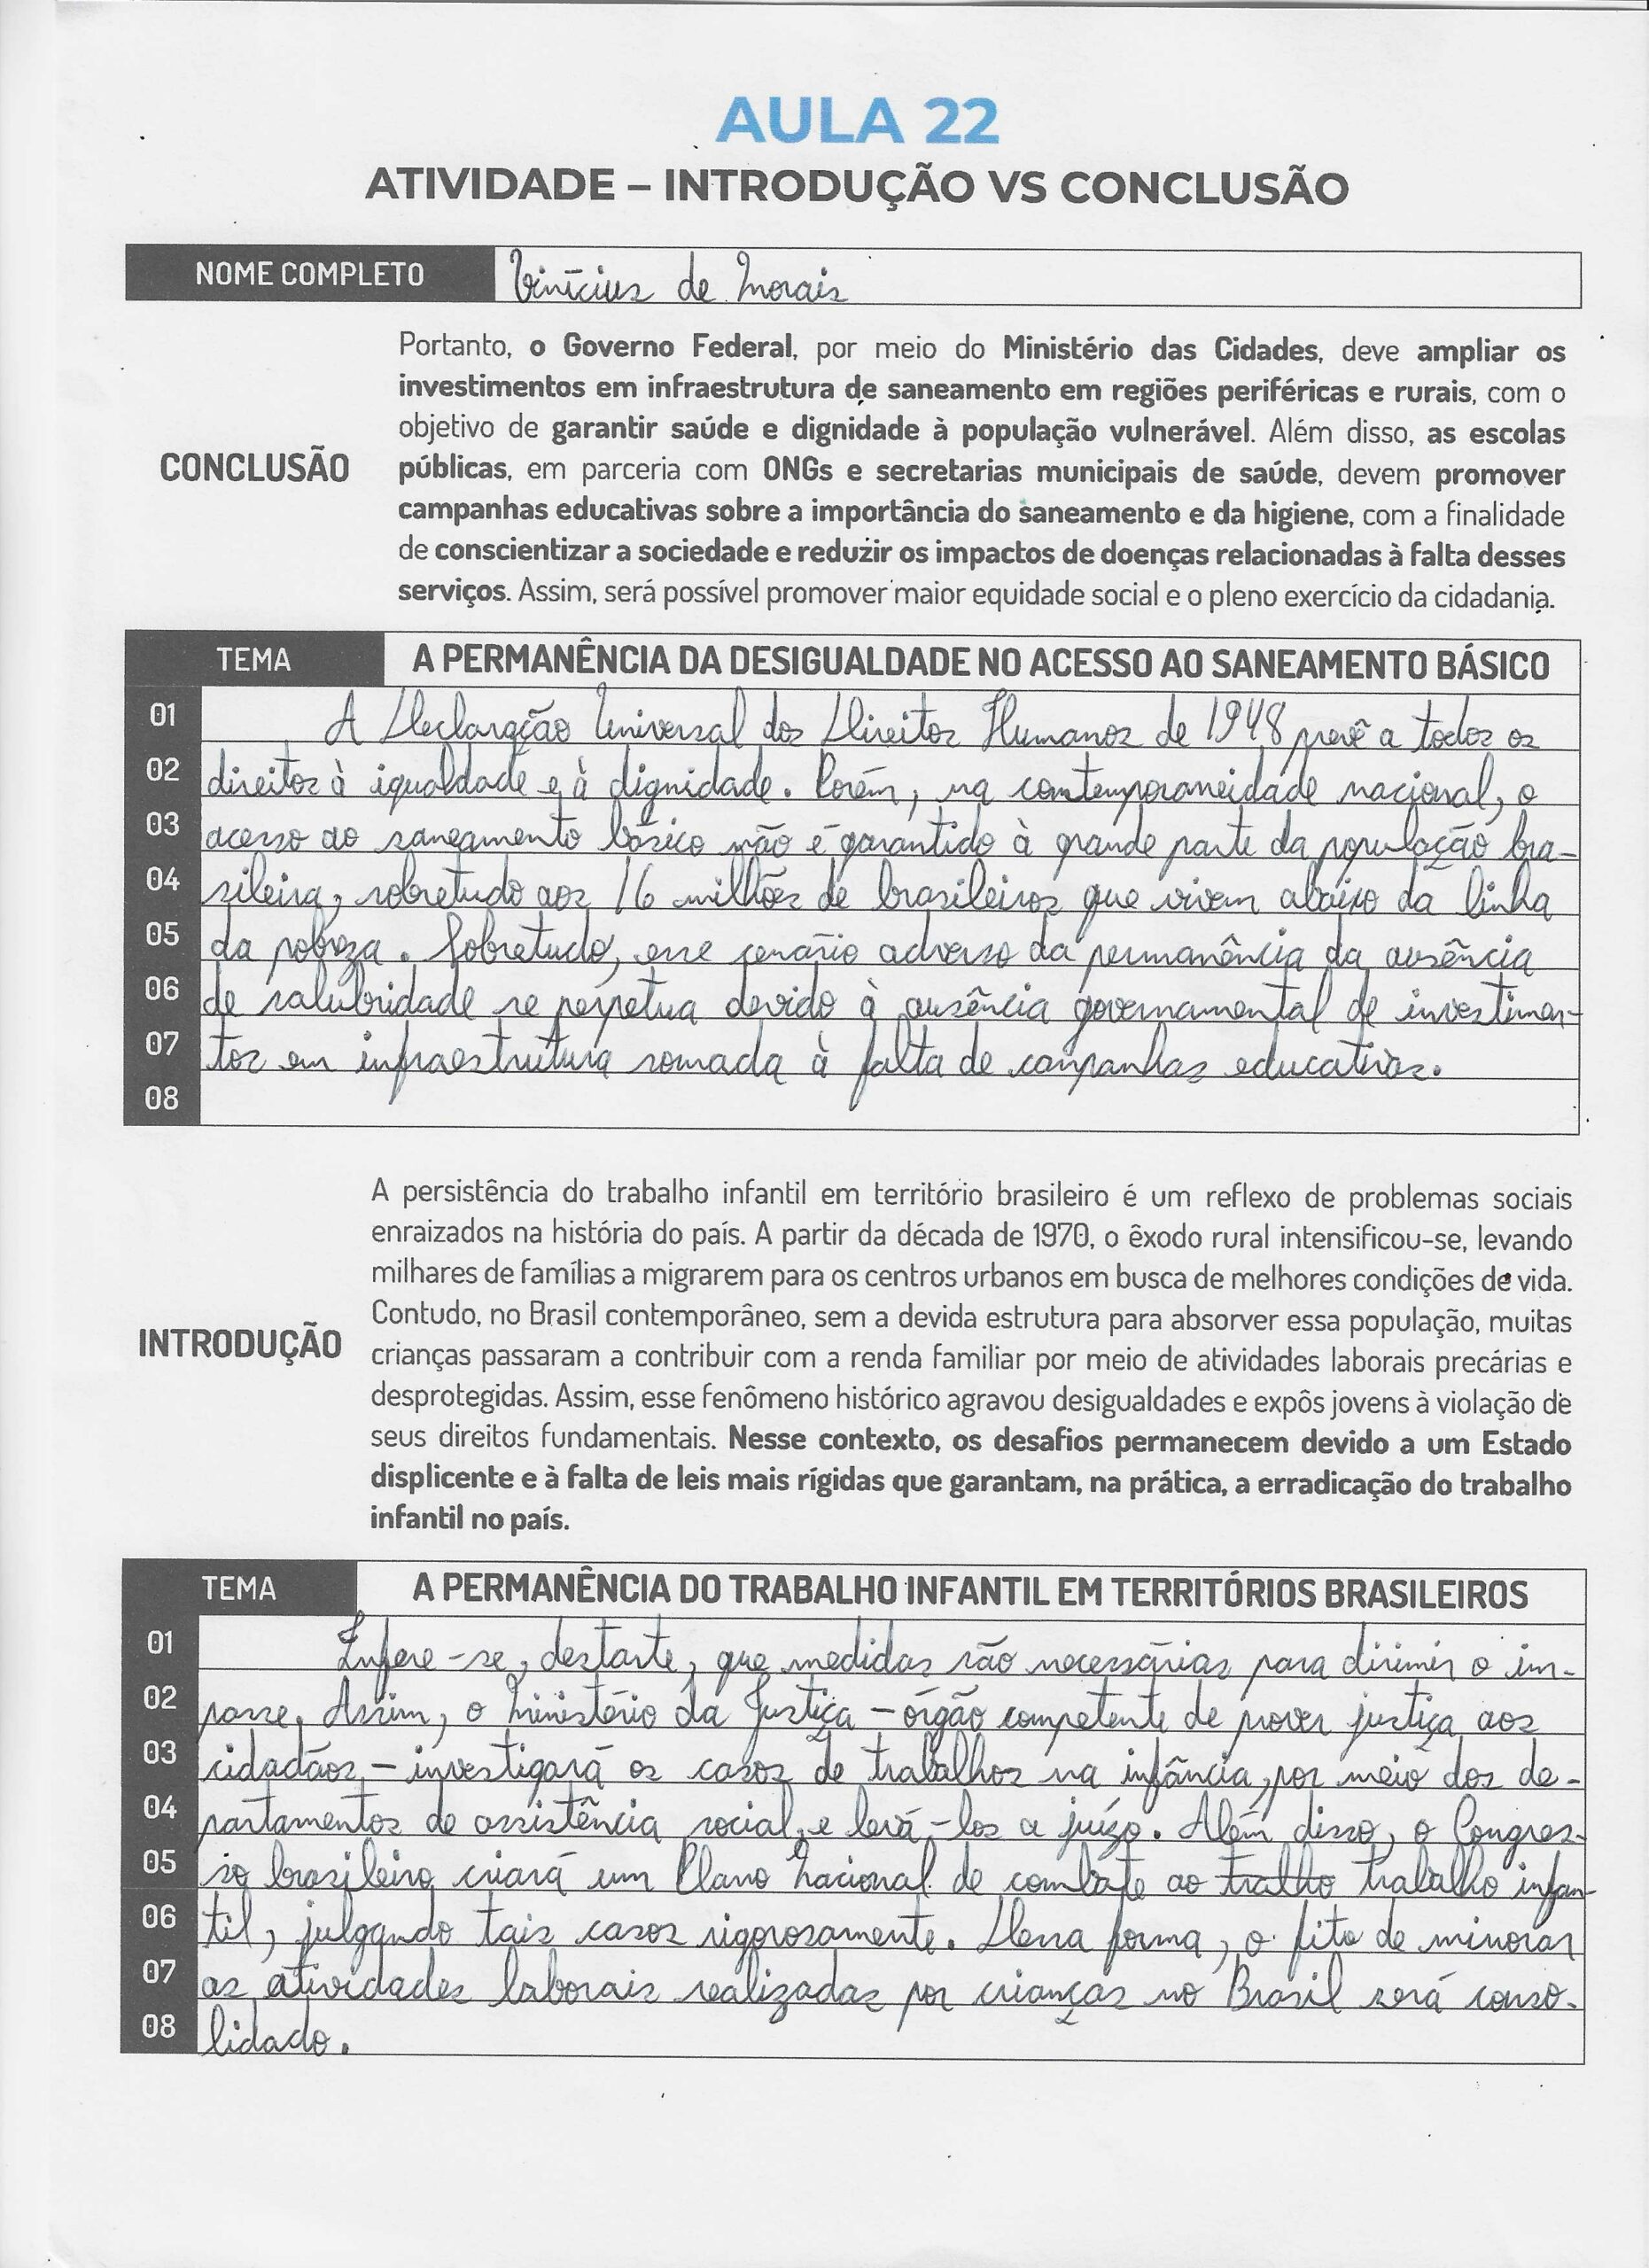 AULA 22
ATIVIDADE – INTRODUÇÃO VS CONCLUSÃO
NOME COMPLETO Vinícius de Morais
Portanto, o Governo Federal, por meio do Ministério das Cidades, deve ampliar os
investimentos em infraestrutura de saneamento em regiões periféricas e rurais, com o
objetivo de garantir saúde e dignidade à população vulnerável. Além disso, as escolas
CONCLUSÃO públicas, em parceria com ONGs e secretarias municipais de saúde, devem promover
campanhas educativas sobre a importância do saneamento e da higiene, com a finalidade
de conscientizar a sociedade e reduzir os impactos de doenças relacionadas à falta desses
serviços. Assim, será possível promover maior equidade social e o pleno exercício da cidadania.
TEMA A PERMANÊNCIA DA DESIGUALDADE NO ACESSO AO SANEAMENTO BÁSICO
01 A Declaração Universal dos Direitos Humanos de 1948 prevê a todos os
02 direitos à igualdade e à dignidade. Porém, na contemporaneidade nacional, o
03 acesso ao saneamento básico não é garantido à grande parte da população bra-
04 sileira, sobretudo aos 16 milhões de brasileiros que vivem abaixo da linha
05 da pobreza. Sobretudo, esse cenário adverso da permanência da ausência
06 de salubridade se perpetua devido à ausência governamental de investimen-
07 tos em infraestrutura somada à falta de campanhas educativas.
08
A persistência do trabalho infantil em território brasileiro é um reflexo de problemas sociais
enraizados na história do país. A partir da década de 1970, o êxodo rural intensificou-se, levando
milhares de famílias a migrarem para os centros urbanos em busca de melhores condições de vida.
Contudo, no Brasil contemporâneo, sem a devida estrutura para absorver essa população, muitas
INTRODUÇÃO crianças passaram a contribuir com a renda familiar por meio de atividades laborais precárias e
desprotegidas. Assim, esse fenômeno histórico agravou desigualdades e expôs jovens à violação de
seus direitos fundamentais. Nesse contexto, os desafios permanecem devido a um Estado
displicente e à falta de leis mais rígidas que garantam, na prática, a erradicação do trabalho
infantil no país.
TEMA A PERMANÊNCIA DO TRABALHO INFANTIL EM TERRITÓRIOS BRASILEIROS
01 Infere-se, destarte, que medidas são necessárias para dirimir o im-
02 passe. Assim, o Ministério da Justiça – órgão competente de prover justiça aos
03 cidadãos – investigará os casos de trabalhos na infância, por meio dos de-
04 partamentos de assistência social, e levá-los a juízo. Além disso, o Congres-
05 so brasileiro criará um Plano Nacional de combate ao tralho trabalho infan-
06 til, julgando tais casos rigorosamente. Dessa forma, o fito de minorar
07 as atividades laborais realizadas por crianças no Brasil será conso-
08 lidado.